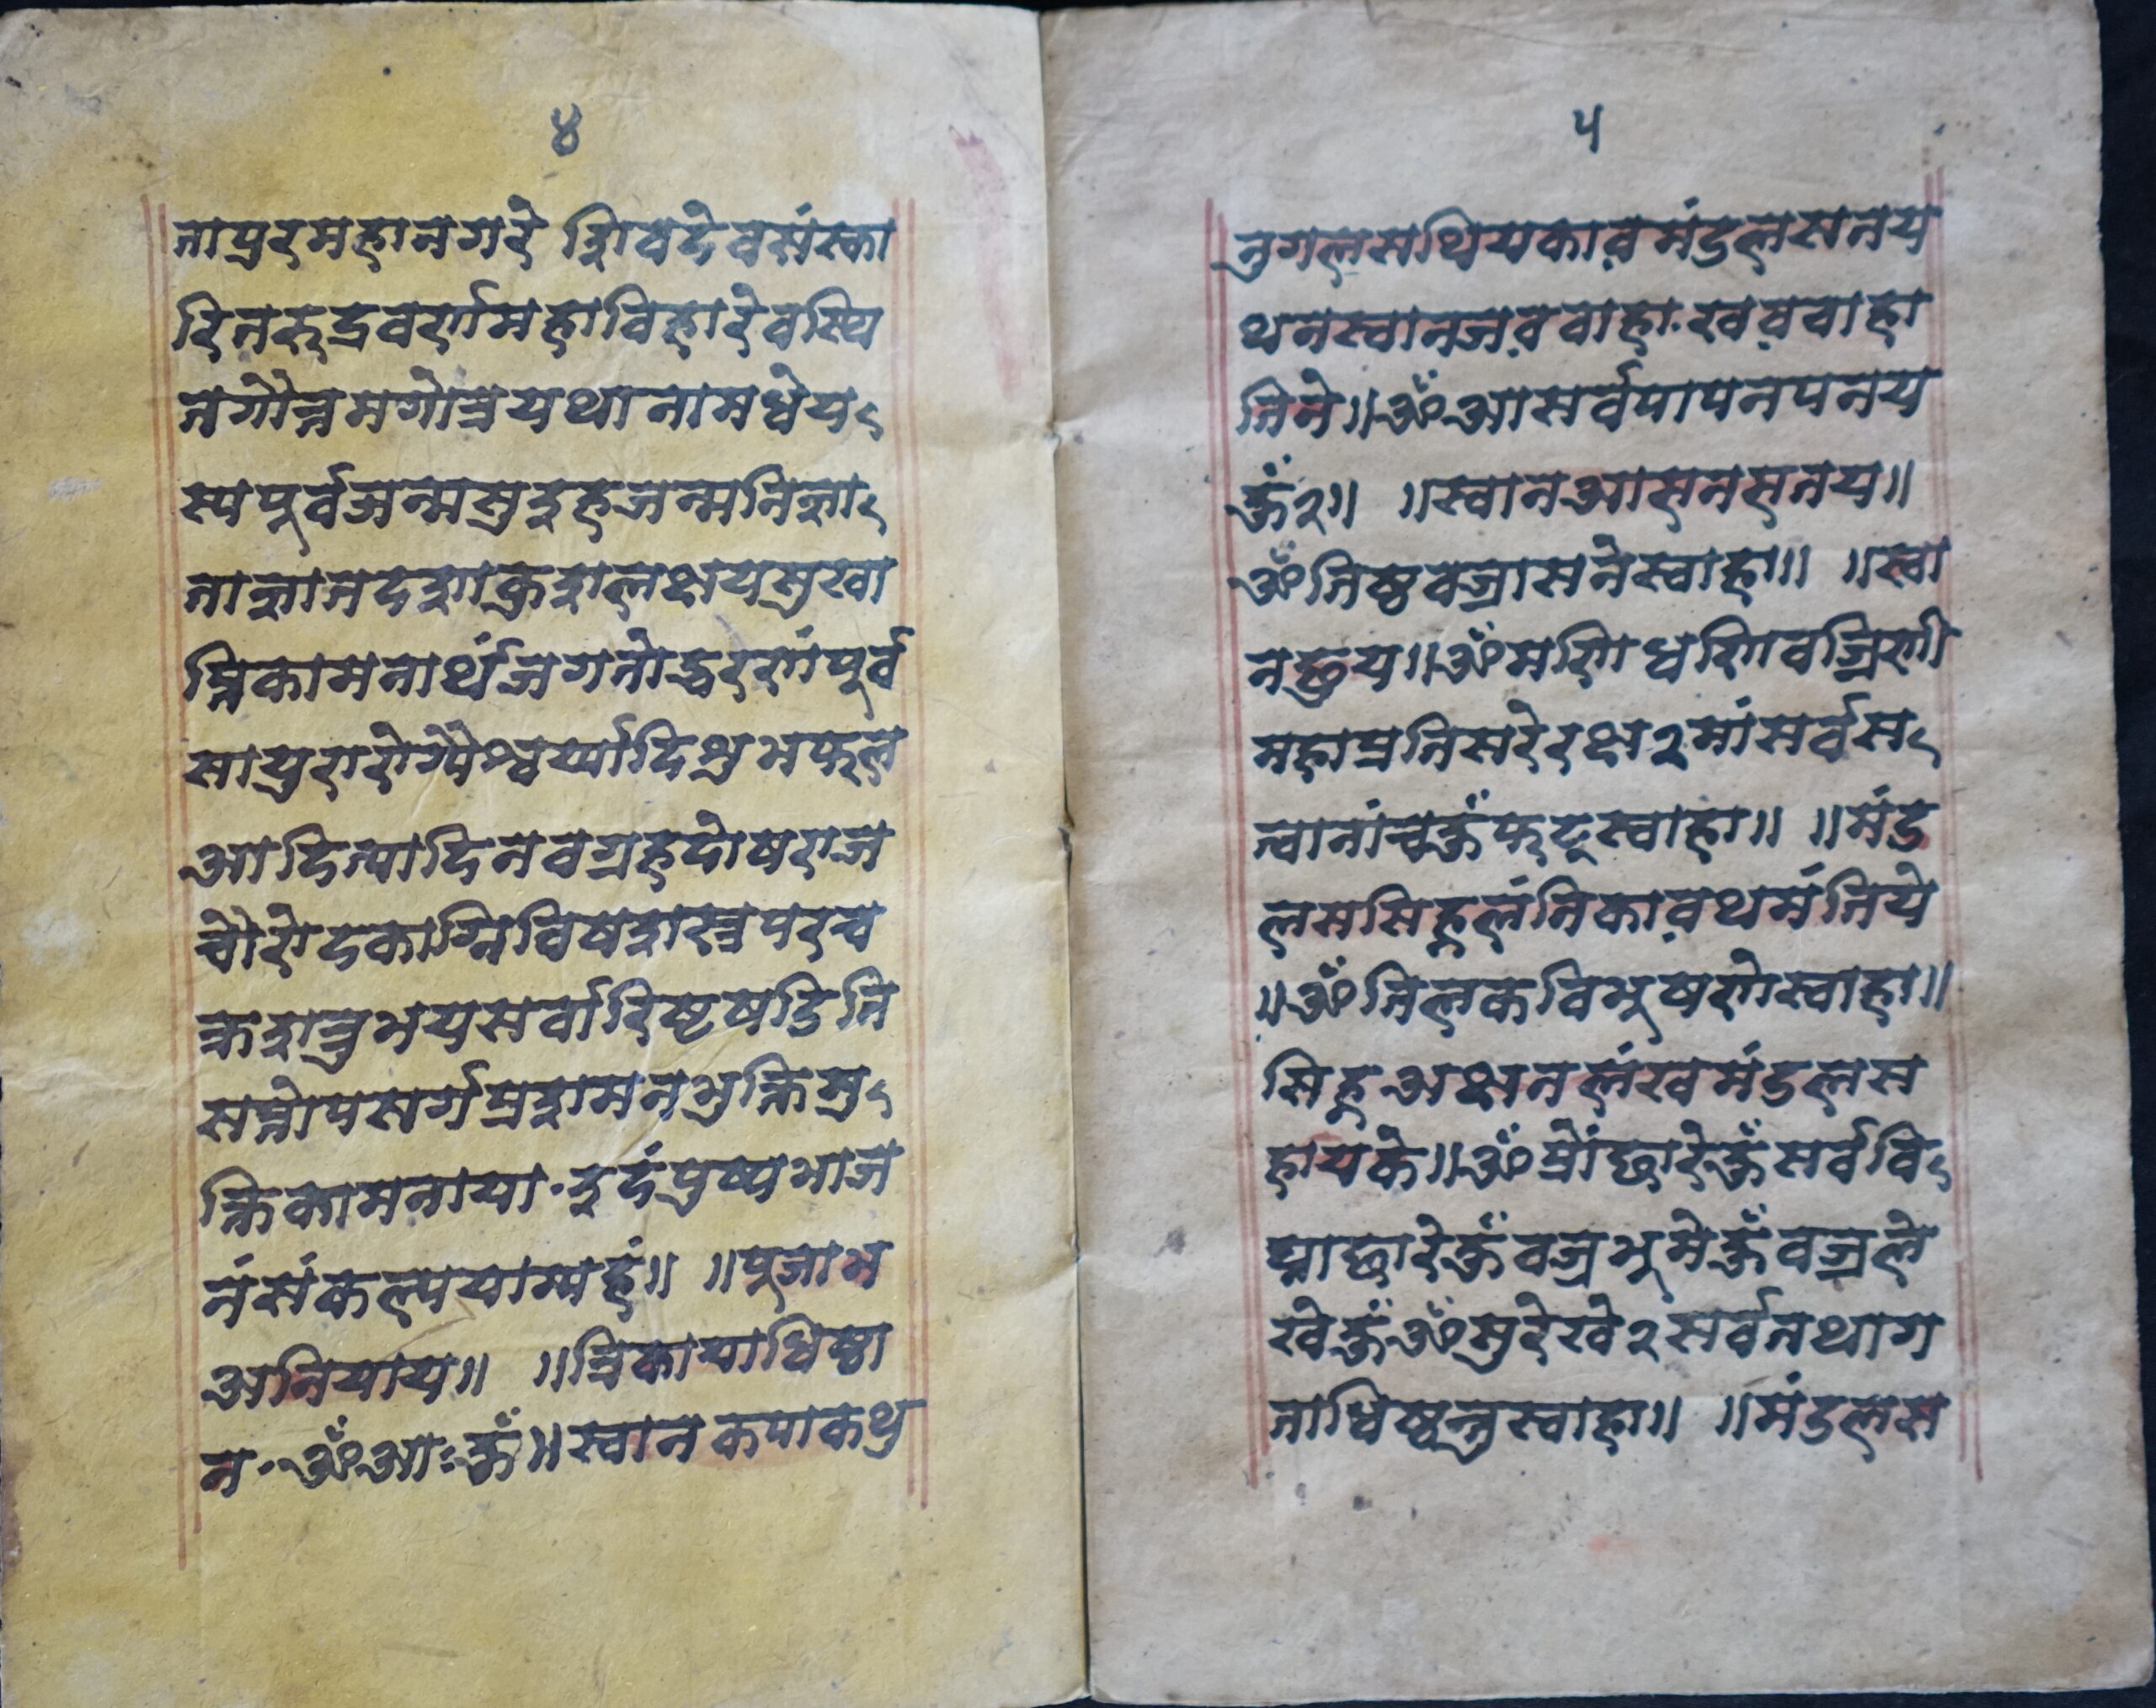 ४
तापुरमहानगरे शिवदेवसंस्का
रितरुद्रवर्णमहाविहारेवस्थि
तगौत्तमगोत्रयथानामधेय
स्यपूर्वजन्मसुइहजन्मनिज्ञा
ताज्ञातदशाकुशलक्षयसुखा
प्तिकामनार्थंजगतोद्धरणंपूर्व
सायुरारोग्यैश्वर्य्यादिशुभफल
आदित्यादिनवग्रहदोषराज
चौरोदकाग्निविषशस्त्रपरच
क्रशत्रुभयसर्वारिष्टषडिति
सप्तोपसर्गप्रशमनभुक्तिमु
क्तिकामनाया॰इदंपुष्पभाज
नंसंकल्पयाम्यहं॥ ॥पूजाभ
अतियाय॥ ॥त्रिकायाधिष्ठा
न॰ॐआःहूँ॥स्वानकयाकथु
५
तुगलसथियकाव़मंडलसतय
थनस्वानजव़वाहा॰खव़वाहा
तिने॥ॐआसर्वपापनपनय
हूँ२॥ ॥स्वानआसनसतय॥
ॐतिष्ठवज्रासनेस्वाहा॥ ॥स्वा
नछुय॥ॐमणिधरिणवज्रिणी
महाप्रतिसरेरक्ष२मांसर्वस
त्वानांचहूँफट्स्वाहा॥ ॥मंड
लससिह्लंतिकाव़थमंतिये
॥ॐतिलकविभूषणेस्वाहा॥
सिहूअक्षतलंखमंडलस
हायके॥ॐह्रोंछारेहूँसर्ववि
घ्नाछारेहूँवज्रभूमेहूँवज्रले
खेहूँॐसुरेखे२सर्वतथाग
ताधिष्ठन्तुस्वाहा॥ ॥मंडलस